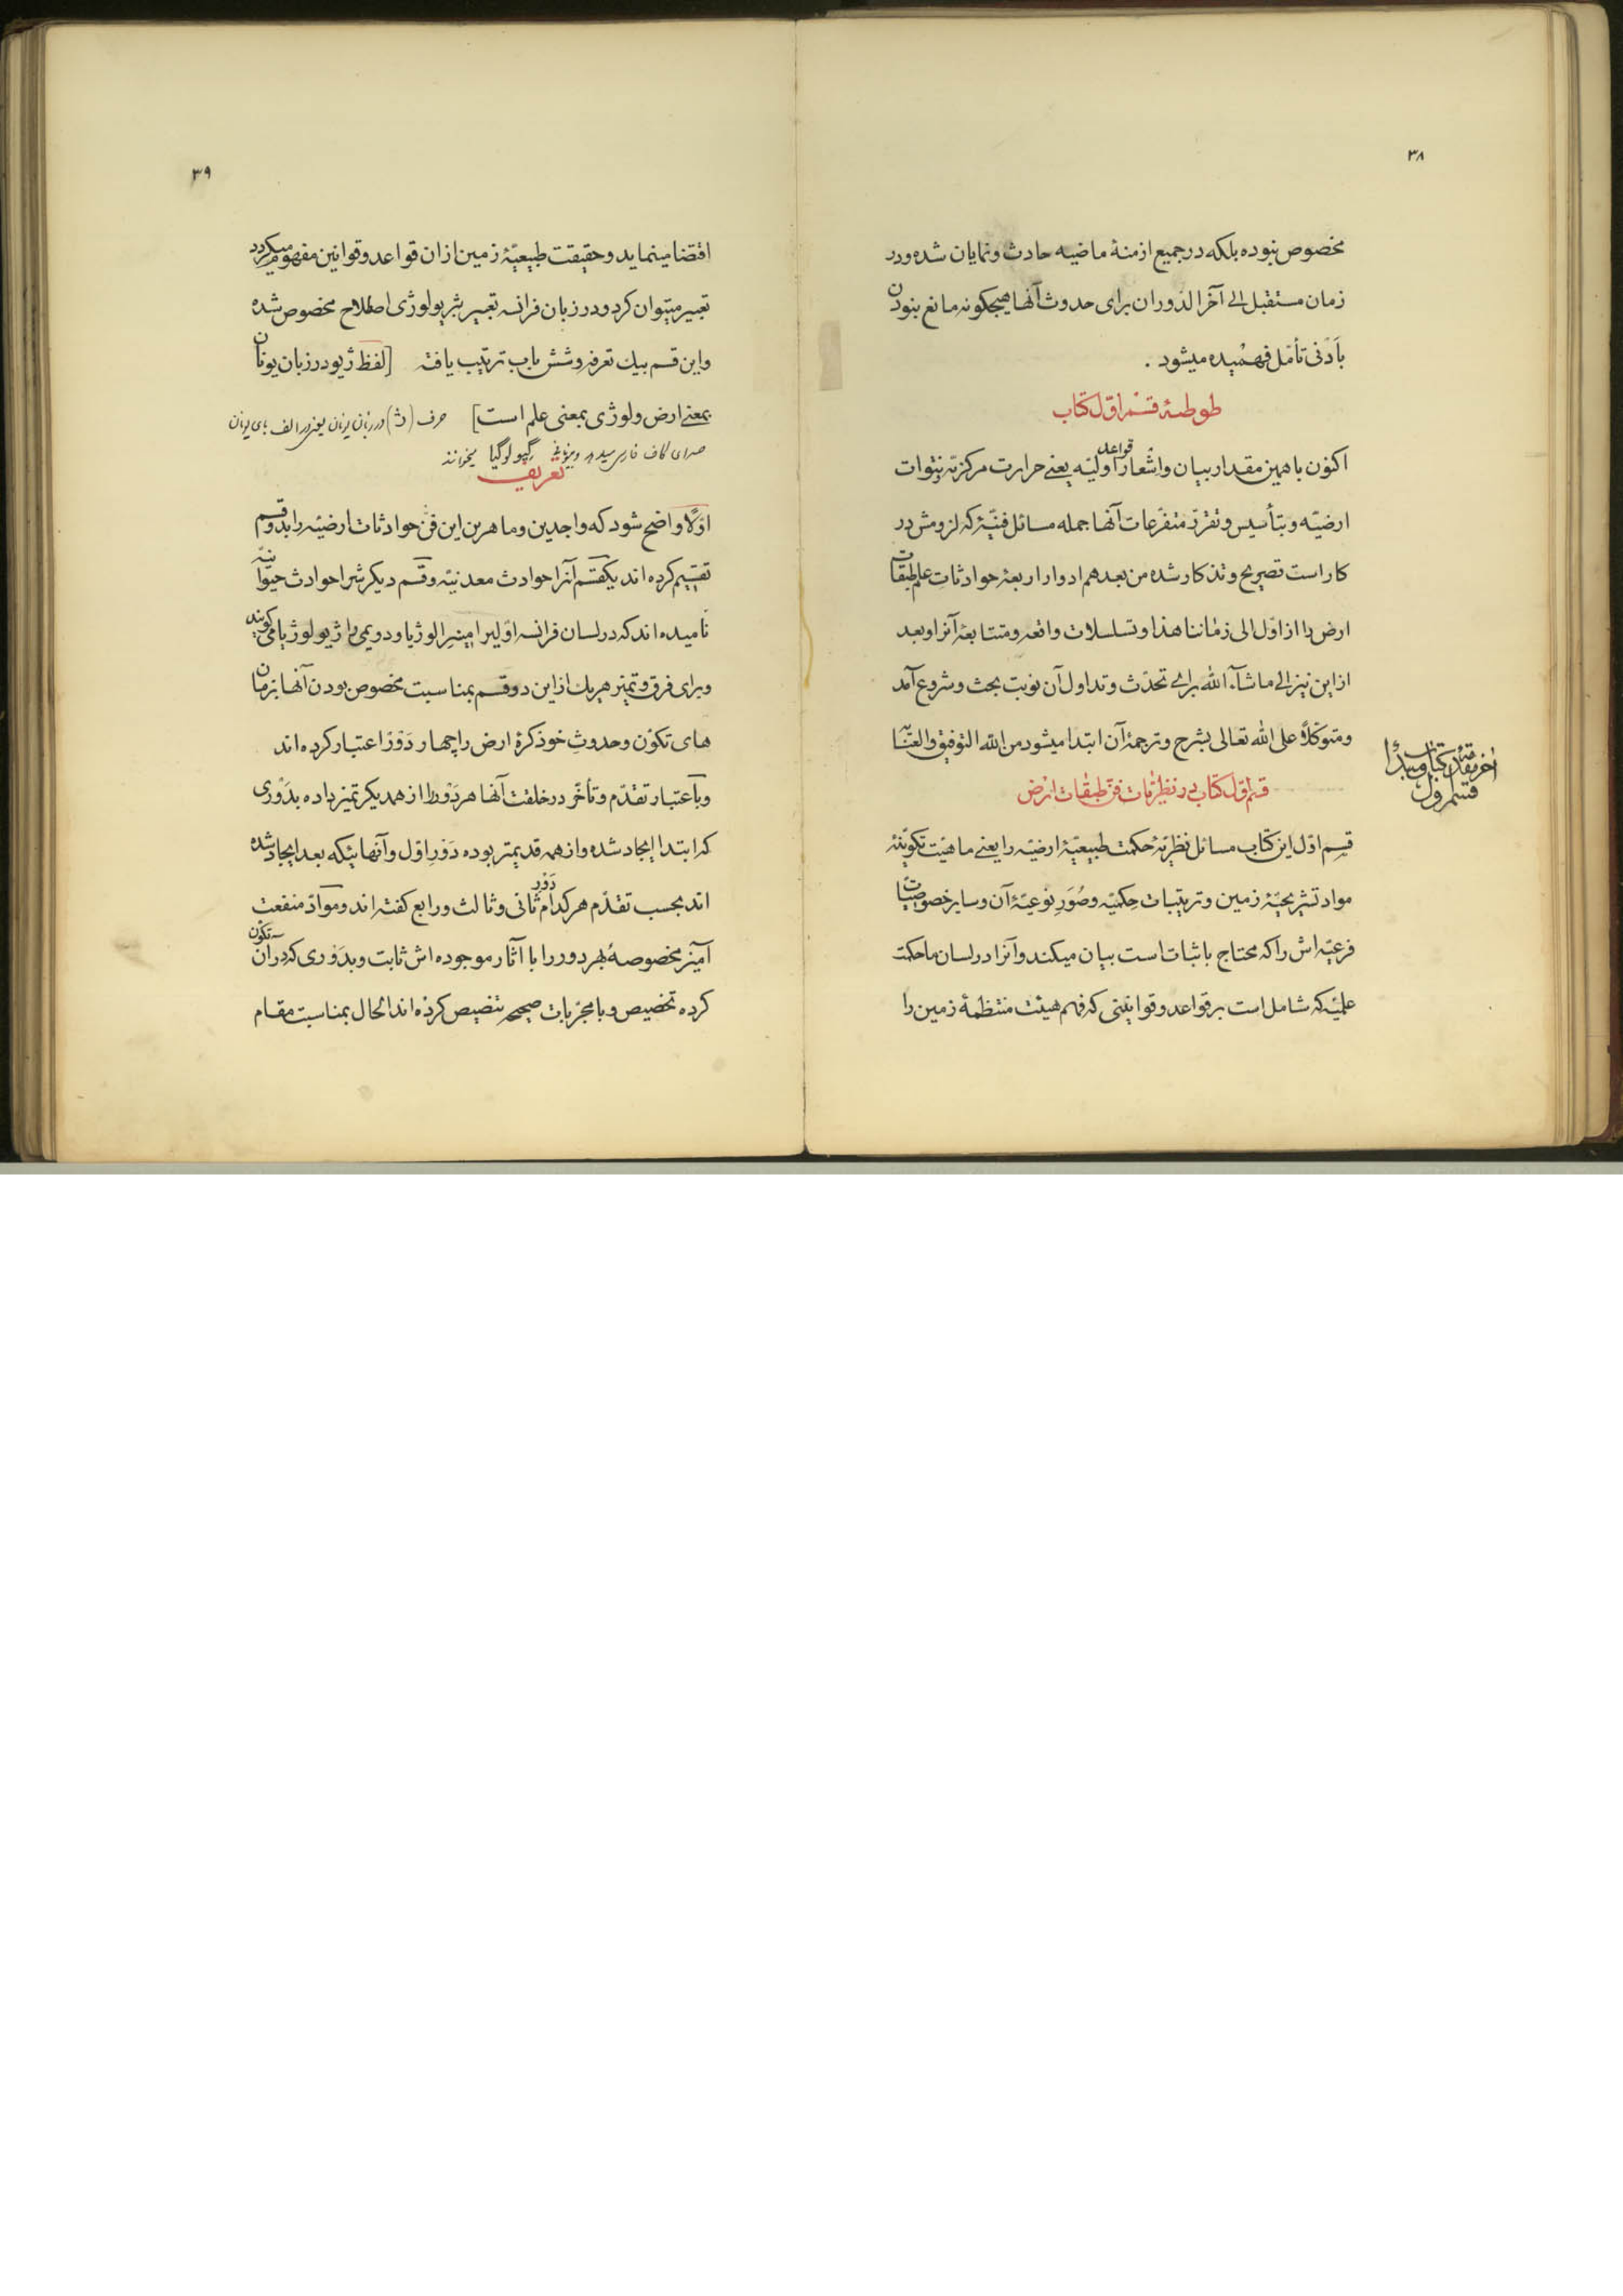 ۳۸
مخصوص نبوده بلکه در جمیع ازمنهٔ ماضیه حادث و نمایان شده و در
زمان مستقبل الی آخر الدوران برای حدوث آنها هیچکونه مانع نبودن
بأدنی تأمّل فهمیده میشود .
طوطئهٔ قسم اوّل کتاب
اکنون با همین مقدار بیان و اشعار قواعد اولیّه یعنی حرارت مرکزیّه نتوات
ارضیّه و بتأسیس و تفرّد متفرّعات آنها جمله مسائل فنیّهٔ که لزومش در
کار است تصریح و تذکار شده من بعد هم ادوار اربعهٔ حوادثات علم طبقات
ارض را از اوّل الی زماننا هذا و تسلسلات واقعه و متتابعهٔ آنرا و بعد
از این نیز الی ماشآء الله برای تحدّث و تداول آن نوبت بحث و شروع آمد
و متوکّلاً علی الله تعالی بشرح و ترجمهٔ آن ابتدا میشود من الله التوفیق و
آخر مقدّمهٔ کتاب و مبدأ
قسم اول
قسم اوّل کتاب در نظریّات فنّ طبقات ارض
قسم اوّل این کتاب مسائل نظریّهٔ حکمت طبیعیّهٔ ارضیّه را یعنی ماهیّت تکوینیّهٔ
مواد تشریحیّهٔ زمین و ترتیبات حِکمیّه و صُوَرِ نوعیّهٔ آن و سایر خصوصیّات
فرعیّه اش را که محتاج باثبات است بیان میکند و آنرا در لسان ما حکمت
علمیّه که شامل است بر قواعد و قوانینی که فهم هیئت منتظمهٔ زمین را
۳۹
اقتضا مینماید و حقیقت طبیعیّهٔ زمین از ان قواعد و قوانین مفهوم میکردد
تعبیر میتوان کرد و در زبان فرانسه تعبیر ژیولوژی اصطلاح مخصوص شده
و این قسم بیك تعرفه و شش باب ترتیب یافته [لفظ ژیو در زبان یونان
بمعنی ارض و لوژی بمعنی علم است] حرف (ژ) در زبان یونان یعنی در الف بای یونان
صدای کاف فارسی میدهد و گیولوگیا میخوانند
تعریف
اوّلاً واضح شود که واجدین و ماهرین این فنّ حوادثات ارضیّه را بدو قسم
تقسیم کرده اند یکقسم آنرا حوادث معدنیّه و قسم دیکرش را حوادث حیوانیّه
نامیده اند که در لسان فرانسه اوّلیرا مینرالوژیا و دویمی را ژیولوژیا می کویند
و برای فرق و تمیز هر یك از این دو قسم بمناسبت مخصوص بودن آنها بزمان
های تکوّن و حدوثِ خود کرهٔ ارض را چهار دَوْر اعتبار کرده اند
و بأعتبار تقدّم و تأخّر در خلقت آنها هر دَوْر را از همدیکر تمیز داده بدَوْری
که ابتدا ایجاد شده و از همه قدیمتر بوده دَوْرِ اوّل و آنهائیکه بعد ایجاد شده
اند بحسب تقدّم هر کدام دَوْر ثانی و ثالث و رابع کفته اند و موادّ منفعت
آمیز مخصوصهٔ بهر دور را با آثار موجوده اش ثابت و بدَوْری که در ان تکون
کرده تخصیص و با مجرّبات صحیحه تنصیص کرده اند الحال بمناسبت مقام